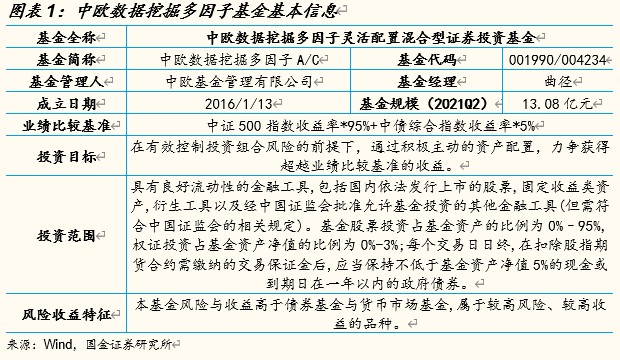 图表 1：中欧数据挖掘多因子基金基本信息
基金全称 中欧数据挖掘多因子灵活配置混合型证券投资基金
基金简称 中欧数据挖掘多因子 A/C 基金代码 001990/004234
基金管理人 中欧基金管理有限公司 基金经理 曲径
成立日期 2016/1/13 基金规模（2021Q2） 13.08 亿元
业绩比较基准 中证 500 指数收益率*95%+中债综合指数收益率*5%
投资目标 在有效控制投资组合风险的前提下，通过积极主动的资产配置，力争获得
超越业绩比较基准的收益。
投资范围 具有良好流动性的金融工具,包括国内依法发行上市的股票,固定收益类资
产,衍生工具以及经中国证监会批准允许基金投资的其他金融工具(但需符
合中国证监会的相关规定)。基金股票投资占基金资产的比例为 0%–95%,
权证投资占基金资产净值的比例为 0%-3%;每个交易日日终,在扣除股指期
货合约需缴纳的交易保证金后,应当保持不低于基金资产净值 5%的现金或
到期日在一年以内的政府债券。
风险收益特征 本基金风险与收益高于债券基金与货币市场基金,属于较高风险、较高收
益的品种。
来源：Wind，国金证券研究所